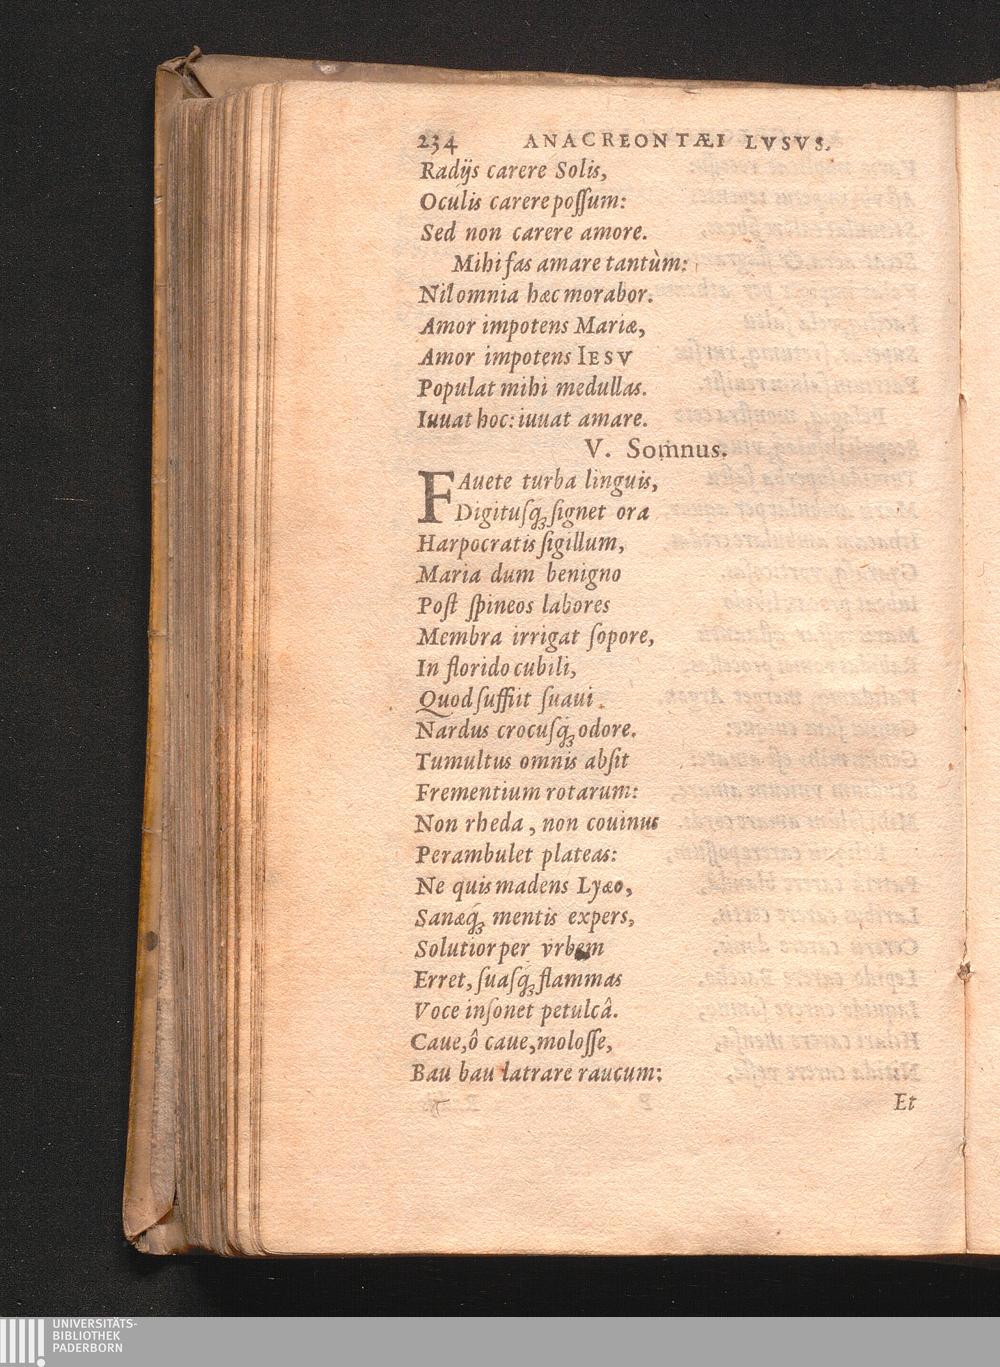 234 ANACREONTÆI LVSVS.
Radijs carere Solis,
Oculis carere poſſum:
Sed non carere amore.
Mihi fas amare tantùm:
Nil omnia hæc morabor.
Amor impotens Mariæ,
Amor impotens IESV
Populat mihi medullas.
Iuuat hoc: iuuat amare.
V. Somnus.
FAuete turba linguis,
Digituſq́ꝫ ſignet ora
Harpocratis ſigillum,
Maria dum benigno
Poſt ſpineos labores
Membra irrigat ſopore,
In florido cubili,
Quod ſuffiit ſuaui
Nardus crocuſq́ꝫ odore.
Tumultus omnis abſit
Frementium rotarum:
Non rheda, non couinus
Perambulet plateas:
Ne quis madens Lyæo,
Sanæq́ꝫ mentis expers,
Solutior per vrbem
Erret, ſuaſq́ꝫ flammas
Voce inſonet petulcâ.
Caue, ô caue, moloſſe,
Bau bau latrare raucum:
Et
UNIVERSITÄTS-
BIBLIOTHEK
PADERBORN